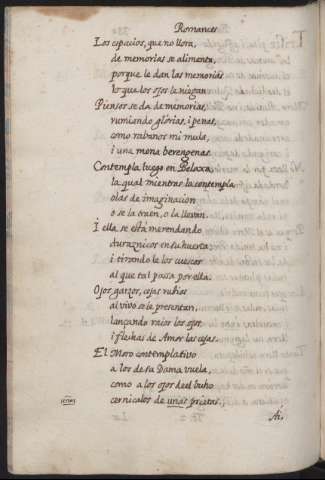 Romances
Los espacios, que no llora,
de memorias se alimenta,
porque le dan las memorias
lo que los ojos le niegan
Piensos se da de memorias,
rumiando glorias, i penas,
como rabanos mi mula,
i una mona berengenas.
Contempla luego en Belaxa,
la qual mientras la contempla
olas de imaginacion
o se la traen, o la llevan.
I ella se está merendando
duraznicos en su huerta
i tirando le los cuescos
al que tal passa por ella.
Ojos garzos, cejas rubias
al vivo se le presentan,
lançando raios los ojos
i flechas de Amor las cejas.
El Moro contemplativo
a los de su Dama vuela,
como a los ojos de el buho
cernicalos de uñas prietas.
Ai,